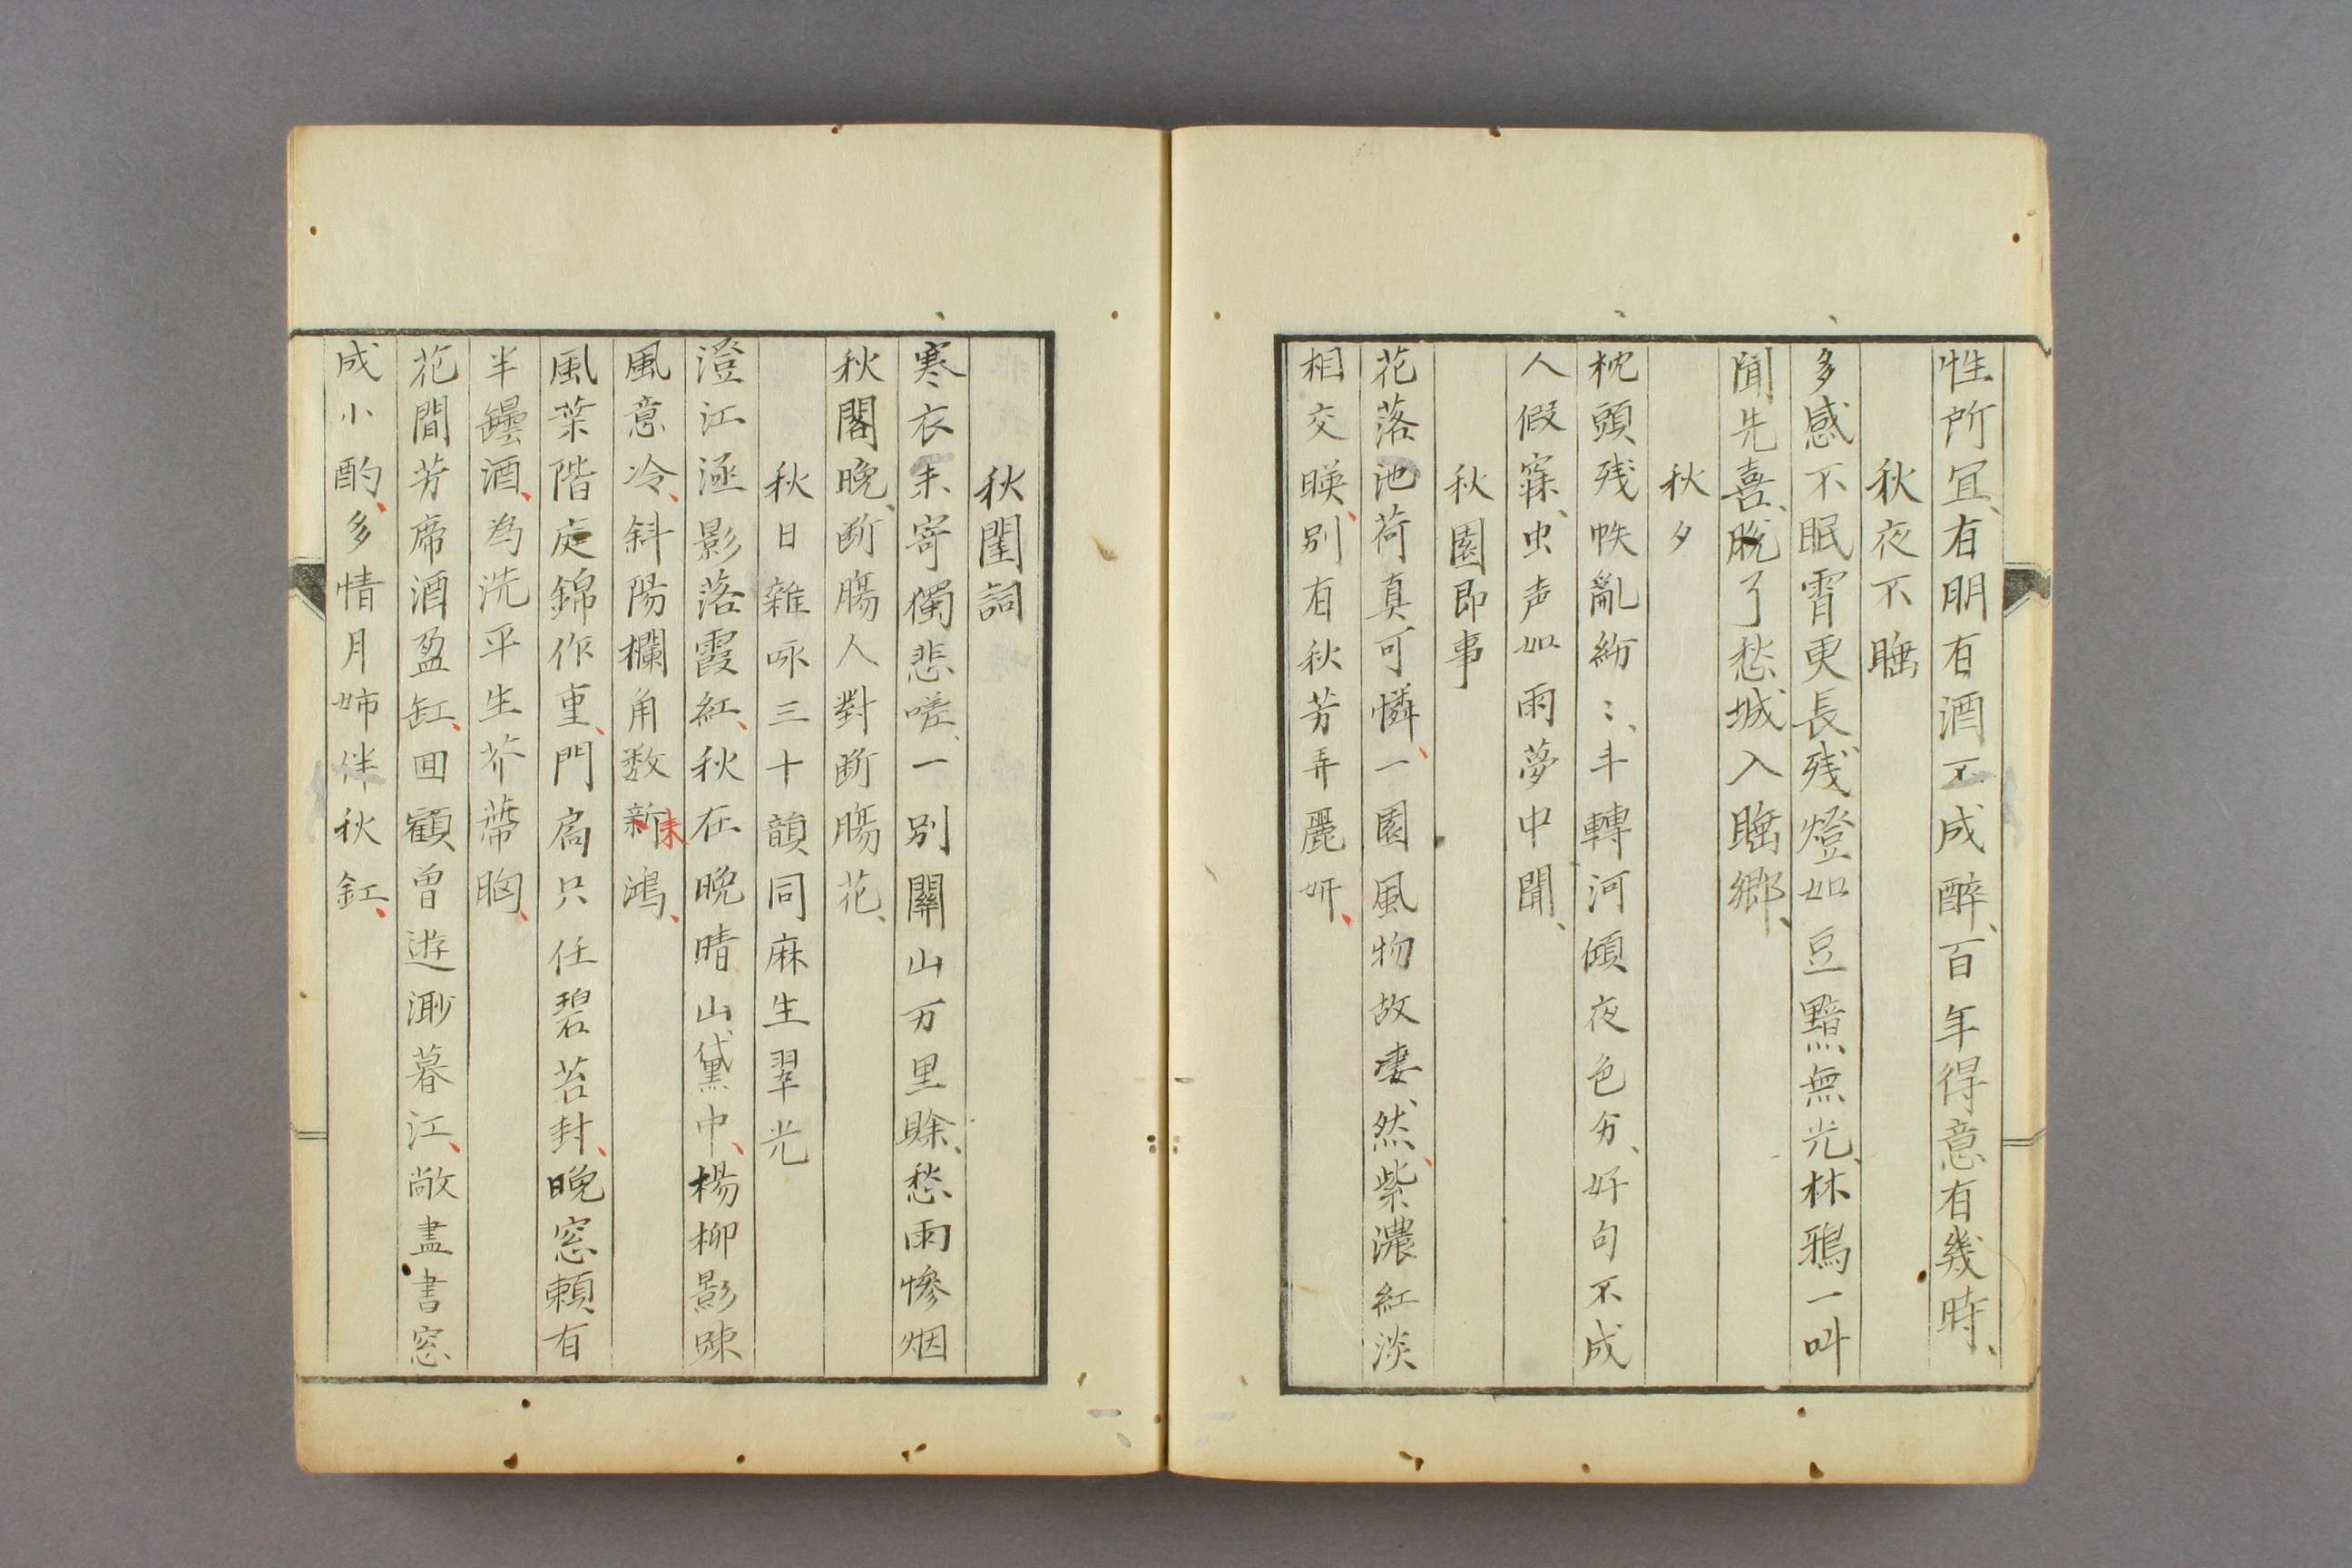 性所宜、有朋有酒不成醉、百年得意有幾時、
秋夜不睡
多感不眠霄更長残燈如豆黯無光、林鴉一叫
聞先喜、脫了愁城入睡郷、
秋夕
枕頭残帙亂紛〻、斗轉河傾夜色分、好句不成
人假寐、虫声如雨夢中聞、
秋園即事
花落池荷真可憐、一園風物故凄然、紫濃紅淡
相交暎、別有秋芳弄麗妍、
秋閨詞
寒衣未寄獨悲嗟、一別關山万里賖、愁雨惨烟
秋閣晩、斷膓人對斷膓花、
秋日雜咏三十韻同麻生翠光
澄江涵影落霞紅、秋在晩晴山黛中、楊柳影踈
風意冷、斜陽欄角数新来鴻、
風葉階庭錦作重、門扃只任碧苔封、晩窓頼有
半罎酒、為洗平生芥蔕胸、
花間芳席酒盈缸、回顧曾遊渺暮江、敞盡書窓
成小酌、多情月姉伴秋釭、